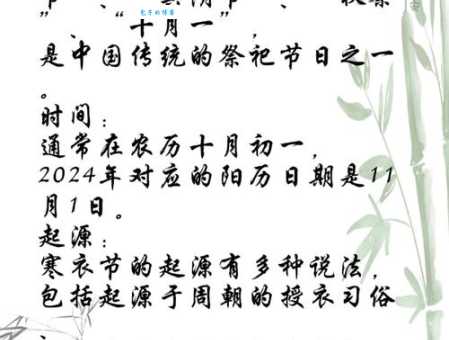 "、"十月一",
是中国传统的祭祀节日之一
。
时间：
通常在农历十月初一，
2024年对应的阳历日期是11
月1日。
起源：
寒衣节的起源有多种说法，
包括起源于周朝的授衣习俗
、